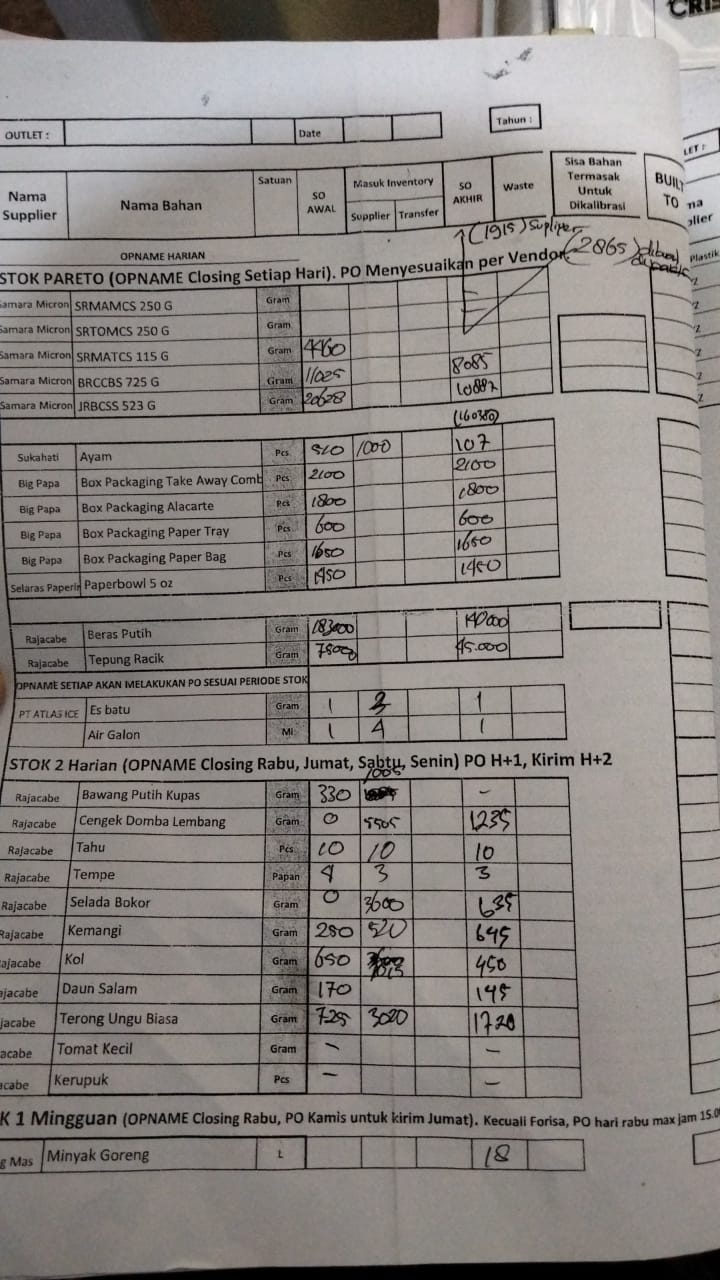 CRIS
OUTLET :
Date
Tahun :
LET :
Nama Supplier
Nama Bahan
Satuan
SO AWAL
Masuk Inventory
Supplier
Transfer
SO AKHIR
Waste
Sisa Bahan Termasak Untuk Dikalibrasi
BUILT TO
na
lier
Plastik
(1915) Suplier
(2865)
OPNAME HARIAN
STOK PARETO (OPNAME Closing Setiap Hari). PO Menyesuaikan per Vendor.
Samara Micron SRMAMCS 250 G Gram
Samara Micron SRTOMCS 250 G Gram
Samara Micron SRMATCS 115 G Gram 4460
Samara Micron BRCCBS 725 G Gram 11025 8085
Samara Micron JRBCSS 523 G Gram 20628
Sukahati Ayam Pcs 1000 107
Big Papa Box Packaging Take Away Comb Pcs 2100 2100
Big Papa Box Packaging Alacarte Pcs 1800 1800
Big Papa Box Packaging Paper Tray Pcs 600 600
Big Papa Box Packaging Paper Bag Pcs 1650 1650
Selaras Paperin Paperbowl 5 oz Pcs 1450 1450
Rajacabe Beras Putih Gram 183000 140000
Rajacabe Tepung Racik Gram 45.000
OPNAME SETIAP AKAN MELAKUKAN PO SESUAI PERIODE STOK
PT ATLAS ICE Es batu Gram 1 1
Air Galon Ml 1 4 1
STOK 2 Harian (OPNAME Closing Rabu, Jumat, Sabtu, Senin) PO H+1, Kirim H+2
1005
Rajacabe Bawang Putih Kupas Gram 330 -
Rajacabe Cengek Domba Lembang Gram 0 5505 1235
Rajacabe Tahu Pcs 10 10 10
Rajacabe Tempe Papan 4 3 3
Rajacabe Selada Bokor Gram 0 3600 635
Rajacabe Kemangi Gram 250 520 645
ajacabe Kol Gram 650 450
ajacabe Daun Salam Gram 170 145
jacabe Terong Ungu Biasa Gram 725 3020 1720
acabe Tomat Kecil Gram - -
cabe Kerupuk Pcs - -
K 1 Mingguan (OPNAME Closing Rabu, PO Kamis untuk kirim Jumat). Kecuali Forisa, PO hari rabu max jam 15.0
g Mas Minyak Goreng L 18